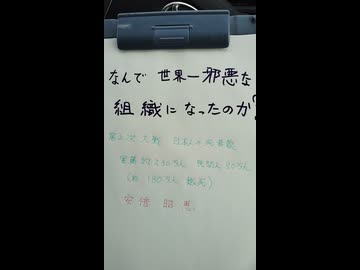 なんで 世界一邪悪な
組織になったのか?
第二次大戦 日本人の死者数
軍属約230万人 民間人80万人
(約 180万人 餓死)
安倍 昭恵